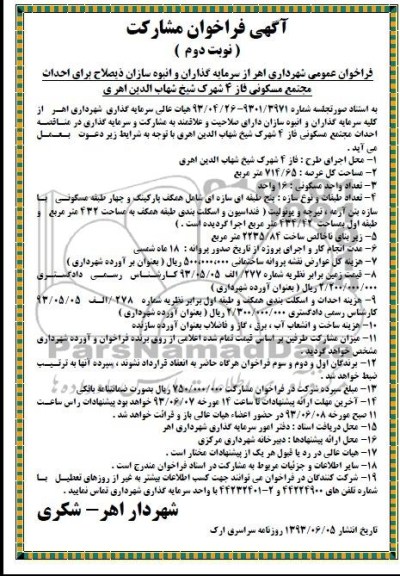 آگهی فراخوان مشارکت
( نوبت دوم )
فراخوان عمومی شهرداری اهر از سرمایه گذاران و انبوه سازان ذیصلاح برای احداث
مجتمع مسکونی فاز ۴ شهرک شیخ شهاب الدین اهری
به استناد صورتجلسه شماره ۹۳۰۱/۳۹۷۱-۹۳/۰۴/۲۶ هیات عالی سرمایه گذاری شهرداری اهر از
کلیه سرمایه گذاران و انبوه سازان دارای صلاحیت و علاقمند به مشارکت و سرمایه گذاری در مناقصه
احداث مجتمع مسکونی فاز ۴ شهرک شیخ شهاب الدین اهری با توجه به شرایط زیر دعوت بعمل
می آید .
۱- محل اجرای طرح : فاز ۴ شهرک شیخ شهاب الدین اهری
۲- مساحت کل عرصه : ۷۱۴/۶۵ متر مربع
۳- تعداد واحد مسکونی : ۱۶ واحد
۴- تعداد طبقات و نوع سازه : پنج طبقه ای سازه ای شامل همکف پارکینگ و چهار طبقه مسکونی با
سازه بتن آرمه ، تیرچه و یونولیت ( فنداسیون و اسکلت بندی طبقه همکف به مساحت ۴۳۲ متر مربع و
طبقه اول بمساحت ۴۳۴/۴۲ متر مربع اجرا گردیده است . )
۵- زیر بنای ناخالص ساخت ۲۲۳۵/۸۴ متر مربع
۶- مدت انجام کار و اجرای پروژه از تاریخ صدور پروانه : ۱۸ ماه شمسی
۷- هزینه کل عوارض نقشه پروانه ساختمانی ۵۰۰/۰۰۰/۰۰۰ ریال ( بعنوان بر آورده شهرداری )
۸- قیمت زمین برابر نظریه شماره ۲۷۷/الف ۹۳/۰۵/۰۵ کارشناس رسمی دادگستری
۲/۲۰۰/۰۰۰/۰۰۰ ریال ( بعنوان آورده شهرداری )
۹- هزینه احداث و اسکلت بندی همکف و طبقه اول برابر نظریه شماره ۲۷۸/الف ۹۳/۰۵/۰۵
کارشناس رسمی دادگستری ۲/۳۰۰/۰۰۰/۰۰۰ ریال ( بعنوان آورده شهرداری )
۱۰- هزینه ساخت و انشعاب آب ، برق ، گاز و فاضلاب بعنوان آورده سازنده
۱۱- میزان مشارکت طرفین بر اساس قیمت تمام شده اعلامی از روی برنده فراخوان و آورده شهرداری
مشخص خواهد گردید .
۱۲- برندگان اول و دوم و سوم فراخوان هرگاه حاضر به انعقاد قرارداد نشوند ، سپرده آنها به ترتیب
ضبط خواهد شد .
۱۳- مبلغ سپرده شرکت در فراخوان مشارکت ۷۵۰/۰۰۰/۰۰۰ ریال بصورت ضمانتنامه بانکی
۱۴- آخرین مهلت ارائه پیشنهادات تا ساعت ۱۴ مورخه ۹۳/۰۶/۰۷ خواهد بود پیشنهادات راس ساعت
۱۱ صبح مورخه ۹۳/۰۶/۰۸ در حضور اعضاء هیات عالی باز و قرائت خواهد شد .
۱۵- محل دریافت اسناد : دفتر امور سرمایه گذاری شهرداری اهر
۱۶- محل ارائه پیشنهادها : دبیرخانه شهرداری مرکزی
۱۷- هیات عالی در رد یا قبول هر یک از پیشنهادات مختار است .
۱۸- سایر اطلاعات و جزئیات مربوط به مشارکت در اسناد فراخوان مندرج است .
۱۹- شرکت کنندگان در فراخوان می توانند جهت کسب اطلاعات بیشتر به غیر از روزهای تعطیل با
شماره تلفن های ۴۴۲۲۴۹۰۰ و ۲-۴۴۲۳۲۴۰۱ با واحد سرمایه گذاری شهرداری تماس نمایید .
شهردار اهر – شکری
تاریخ انتشار ۱۳۹۳/۰۶/۰۵ روزنامه سراسری ارک